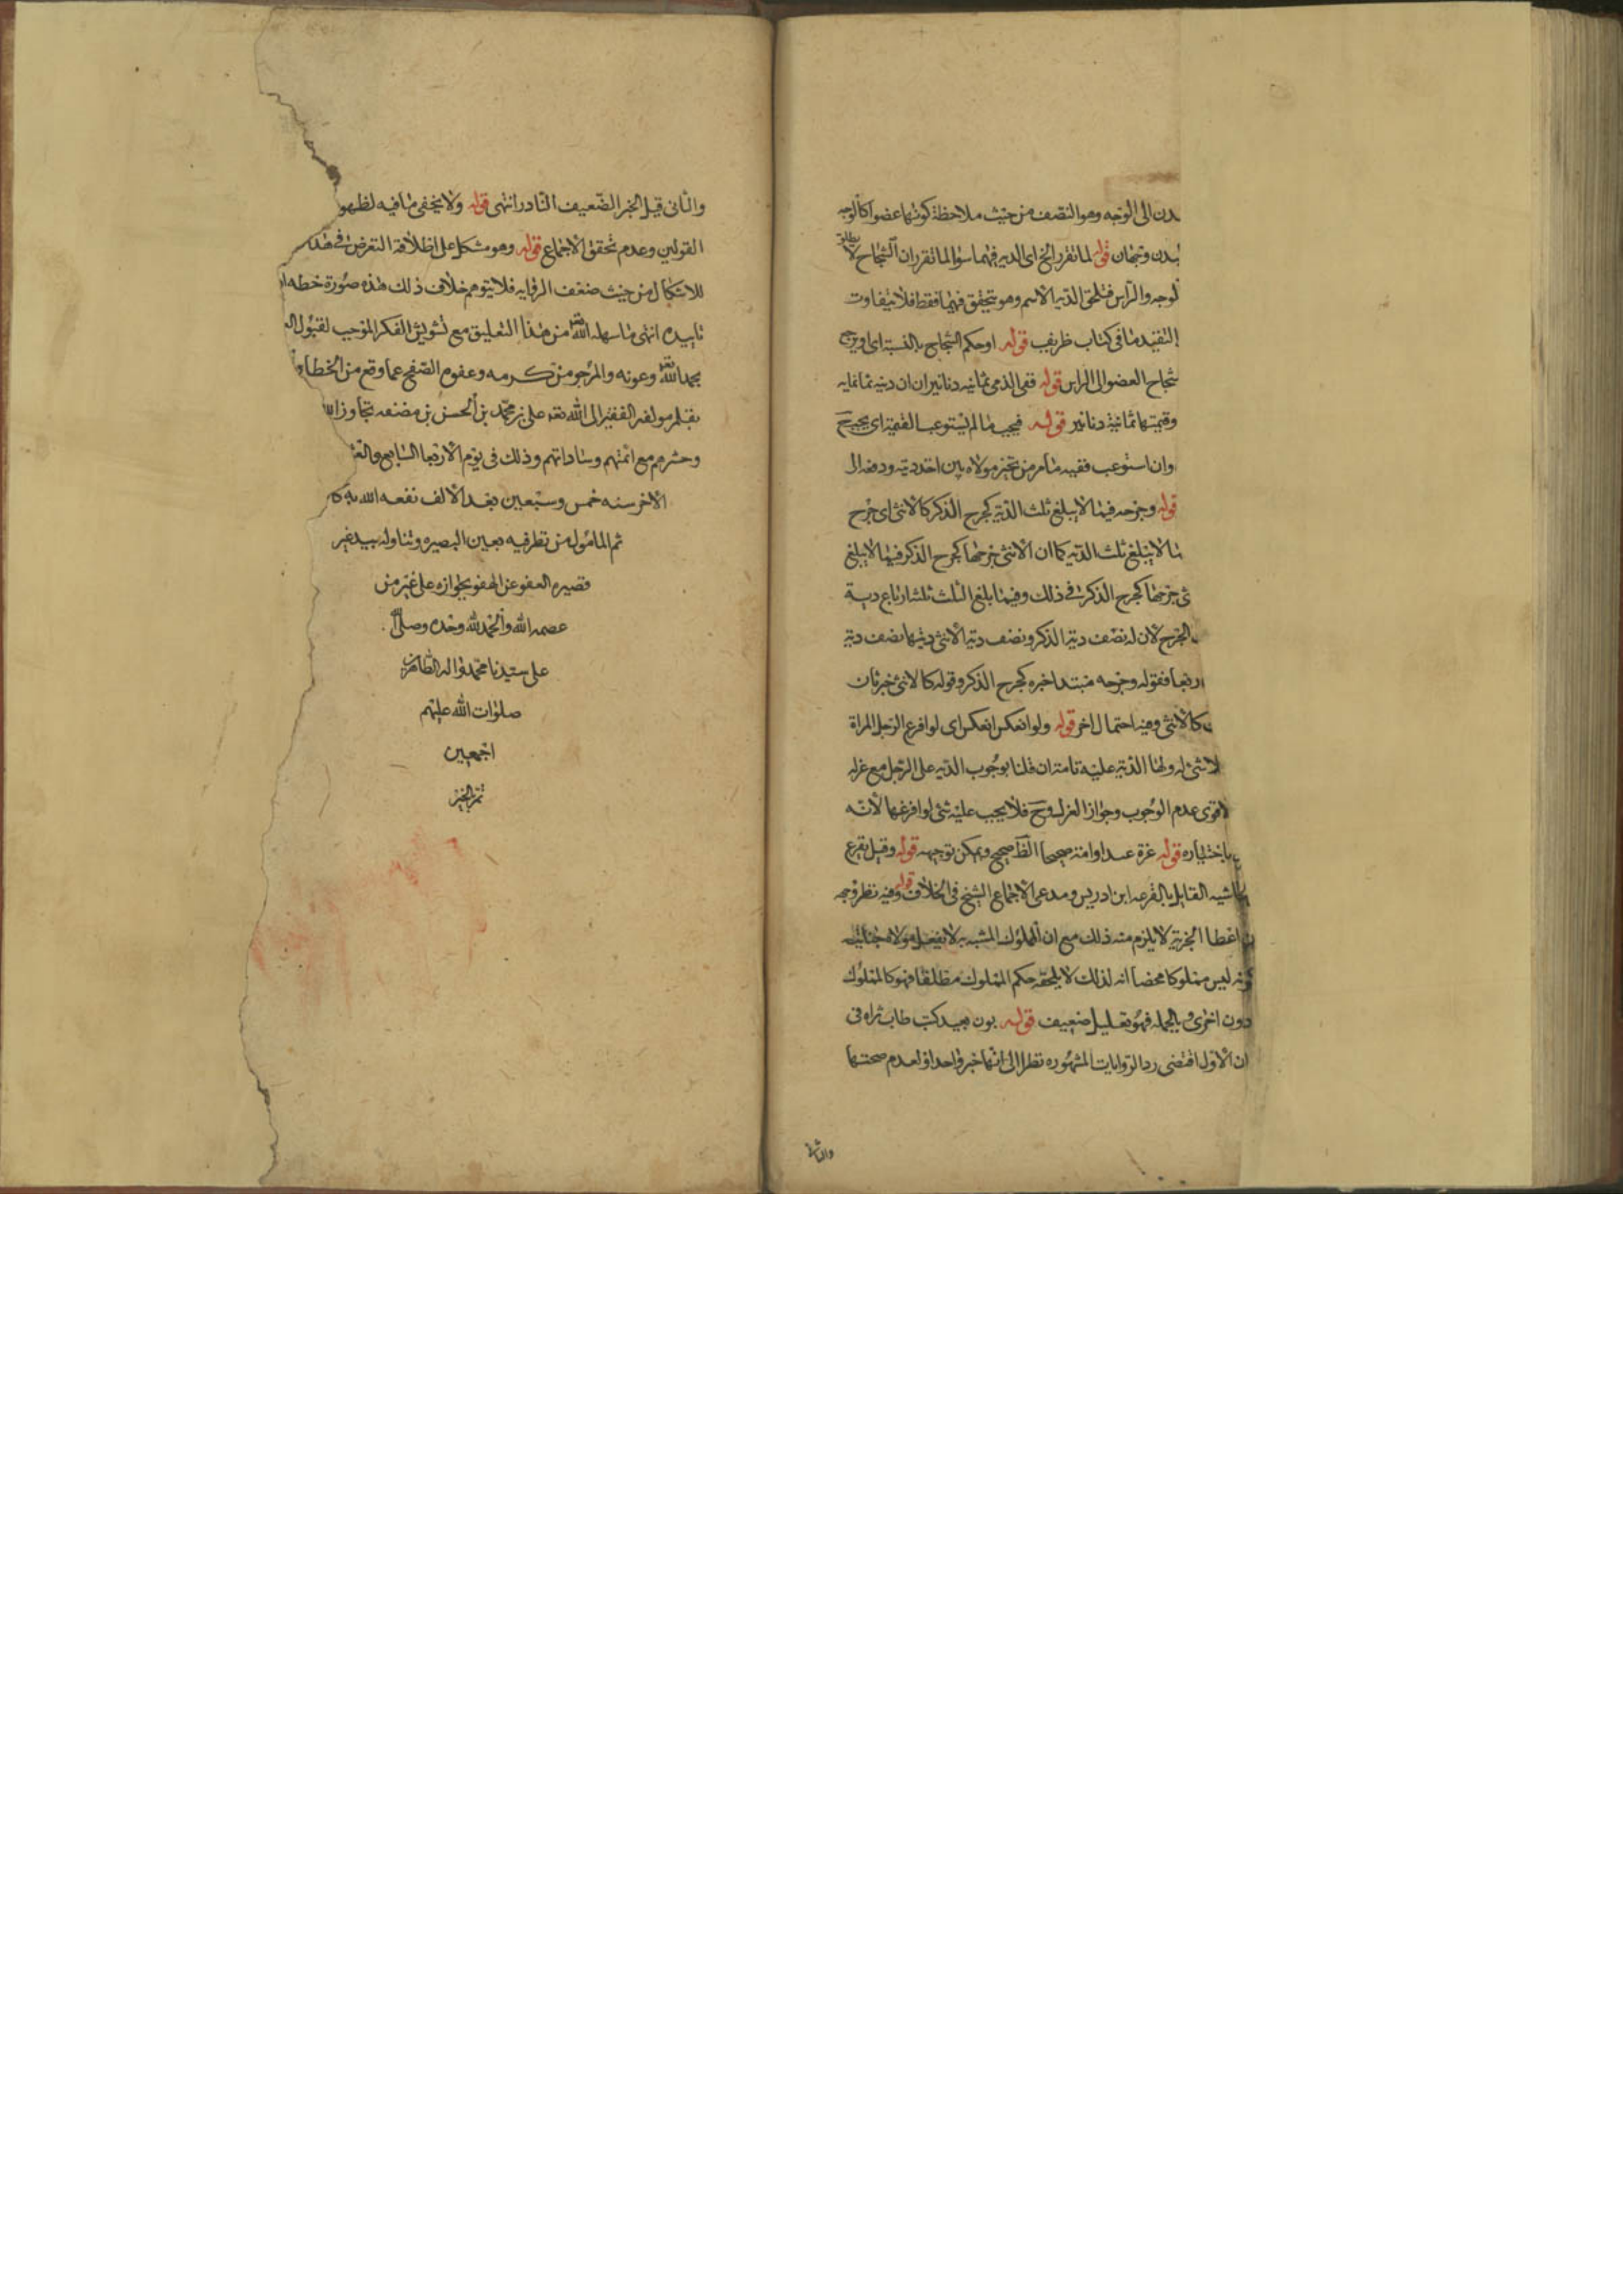 بدن الى الوجه وهو النصف من حيث ملاحظة كونها عضوا كالوجه
بدن وجهان قوله لما تقرر الخ اى الديه فيهما سواء لما تقرر ان الشجاج لا يطلق
لوجه والراس فتلحق الديه الاسم وهو متحقق فيهما فقط فلا يتفاوت
التقييد ما فى كتاب ظريف قوله او حكم الشجاج بالنسبة اى
شجاج العضو الى الراس قوله ففى الذمى ثمانيه دنانير ان ديته ثمانمايه
وقيمتها ثمانية دنانير قوله فيجب ما لم يستوعب القيمة اى يجب ح
وان استوعب ففيه ما مر من تخير مولاه بين اخذ ديته ودفعه الى
قوله وجرحه فيما لا يبلغ ثلث الدية كجرح الذكر كالانثى اى جرح
ما لا يبلغ ثلث الديه كما ان الانثى جرحها كجرح الذكر فيما لا يبلغ
ثى جرحها كجرح الذكر فى ذلك وفيما بلغ الثلث ثلثة ارباع دية
الجرح لان له نصف دية الذكر ونصف دية الانثى ديتها نصف دية
اربعا فقوله وجرحه مبتدا خبره كجرح الذكر وقوله كالانثى خبر ثان
كالانثى وفيه احتمال اخر قوله ولو انعكس انعكس اى لو افرع الرجل المراة
لا شئ له ولها الدية عليه تامة ان قلنا بوجوب الديه على الرجل مع عزله
لاقوى عدم الوجوب وجواز العزل وح فلا يجب عليه شئ لو افرعها لانه
باختياره قوله غرة عبد او امة صحيحا الظ صحيح ويمكن توجيهه قوله وقيل يقرع
حاشيه القايل بالقرعه ابن ادريس ومدعى الاجماع الشيخ فى الخلاف قوله وفيه نظر وجه
اعطا الجزية لا يلزم منه ذلك مع ان المملوك المشبه به لا يعقل مولاه جنايته
كونه ليس مملوكا محضا انه لذلك لا يلحقه حكم المملوك مطلقا فهو كالمملوك
دون اخرى وبالجمله فهو تعليل ضعيف قوله بون بعيد كتب طاب ثراه فى
ان الاول اقتضى رد الروايات المشهوره نظرا الى انها خبر واحد او لعدم صحتها
والثانى
والثانى قبل الخبر الضعيف النادر انتهى قوله ولا يخفى ما فيه لظهو
القولين وعدم تحقق الاجماع قوله وهو مشكل على اطلاقه التعرض فى هذا
للاشكال من حيث ضعف الروايه فلا يتوهم خلاف ذلك هذه صورة خطه
تاييده انتهى ما سهله الله تعالى من هذا التعليق مع تشويش الفكر الموجب لقبول
بحمد الله تعالى وعونه والمرجو من كرمه وعفوه الصفح عما وقع من الخطا
بقلم مولفه الفقير الى الله تعالى على بن محمد بن الحسن بن مصنفه تجاوز الله
وحشرهم مع ائمتهم وساداتهم وذلك فى يوم الاربعا السابع والعشر
الاخر سنه خمس وسبعين بعد الالف نفعه الله به
ثم المامول من نظر فيه بعين البصيره وتناوله بيد غير
قصيره العفو عن الهفو بجوازه على غير من
عصمه الله والحمد لله وحده وصلى الله
على سيدنا محمد واله الطاهرين
صلوات الله عليهم
اجمعين
تم بالخير